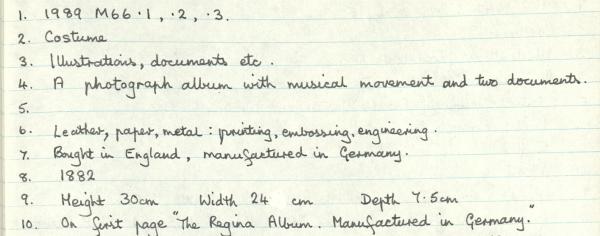 1. 1989 M66.1, .2, .3.
2. Costume
3. Illustrations, documents etc.
4. A photograph album with musical movement and two documents.
5.
6. Leather, paper, metal : printing, embossing, engineering.
7. Bought in England, manufactured in Germany.
8. 1882
9. Height 30cm Width 24 cm Depth 7.5cm
10. On first page "The Regina Album. Manufactured in Germany."